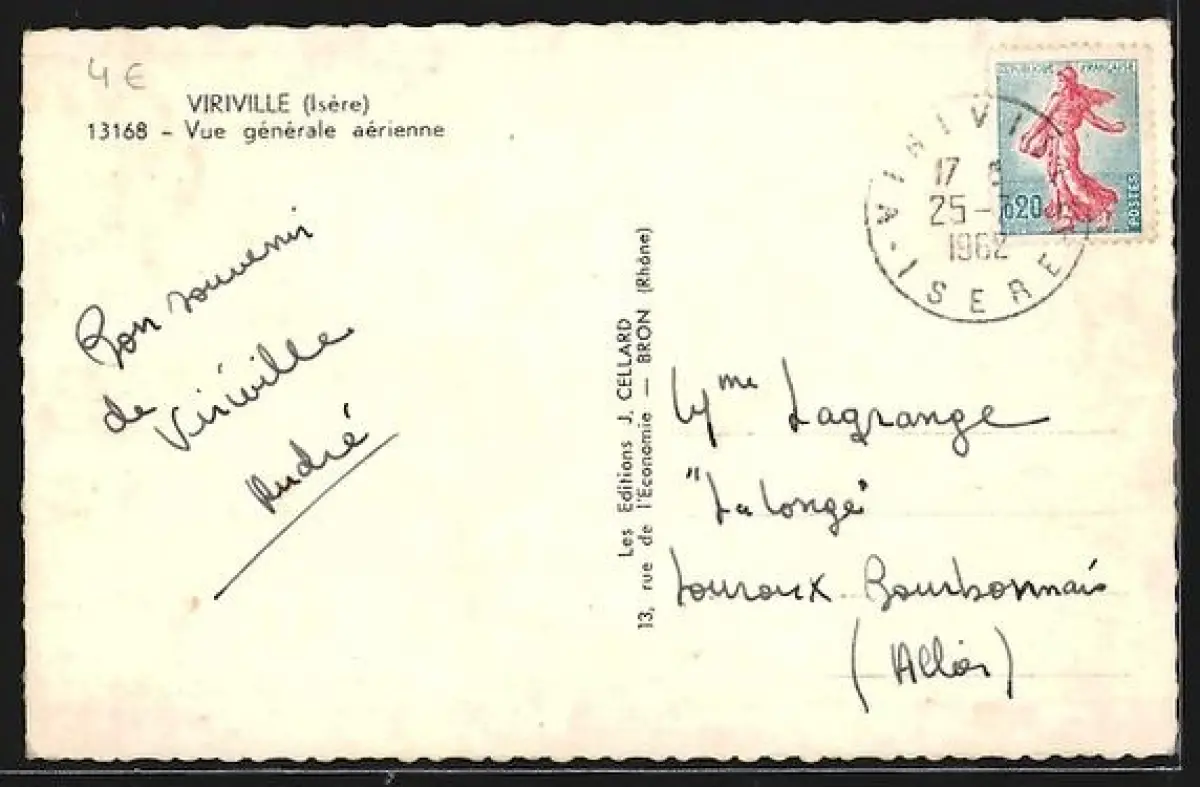 4 €
VIRIVILLE (Isère)
13168 - Vue générale aérienne
Bon souvenir
de
Viriville
André
Les Editions J. CELLARD
13, rue de l'Economie — BRON (Rhône)
REPUBLIQUE FRANÇAISE
0,20
POSTES
VIRIVI
17
25 -
1962
ISERE
Mme Lagrange
"La longe"
Louroux Bourbonnais
(Allier)